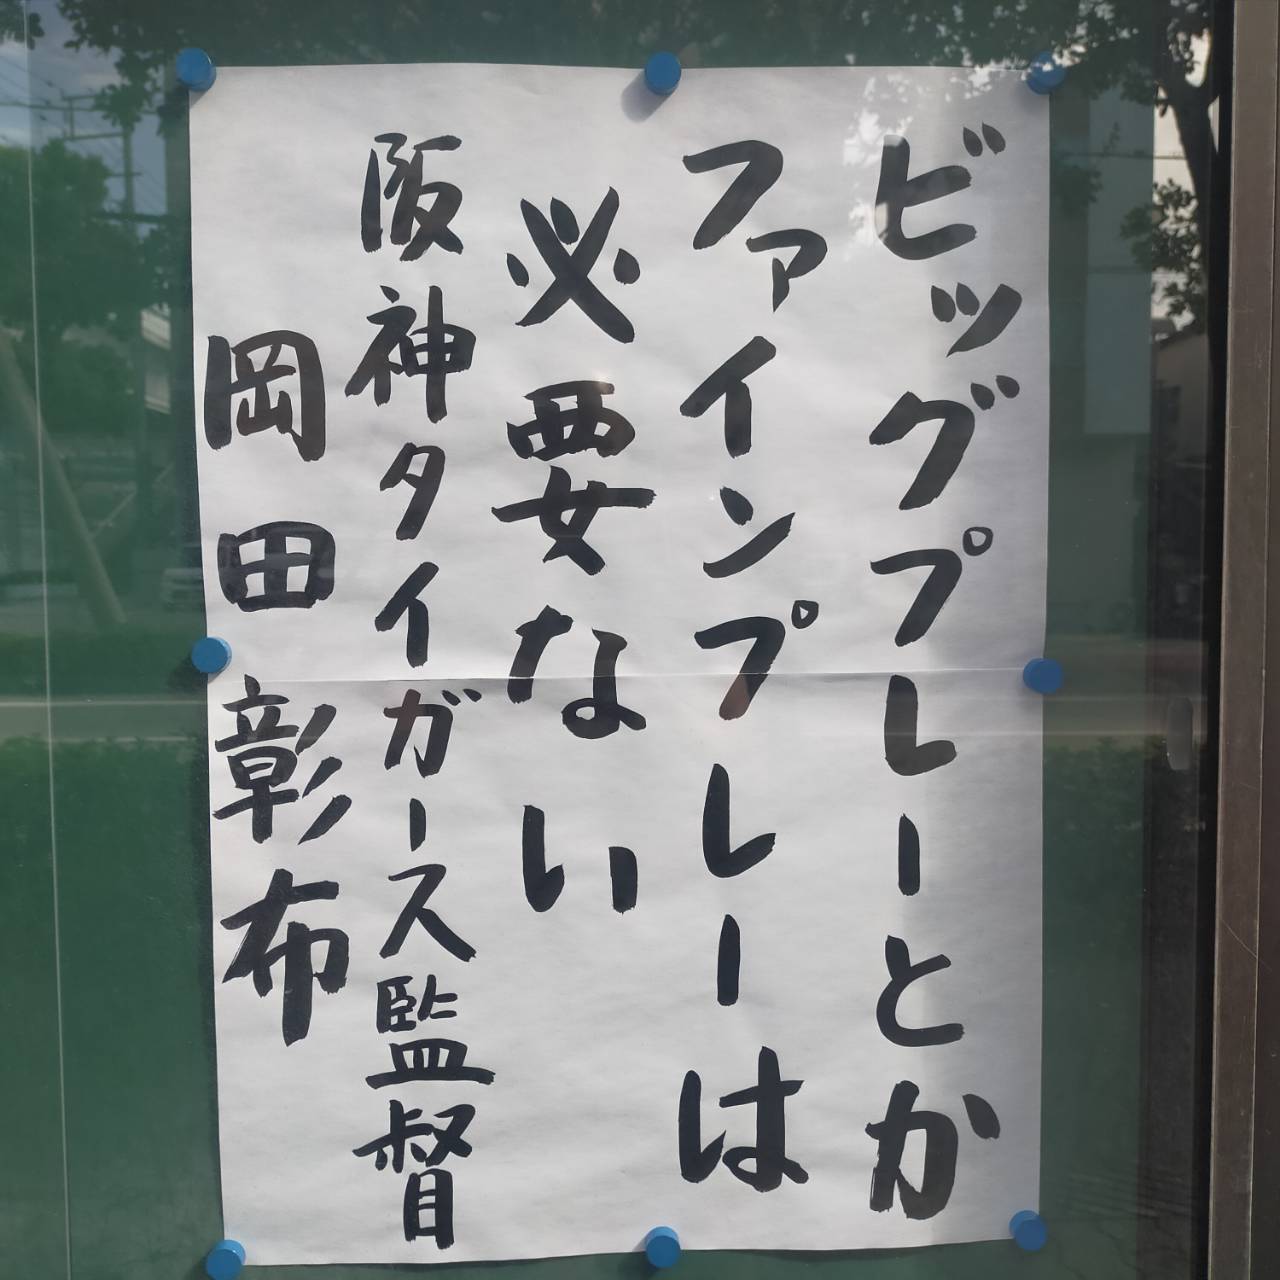 ビッグプレーとか
ファインプレーは
必要ない
阪神タイガース監督
岡田彰布